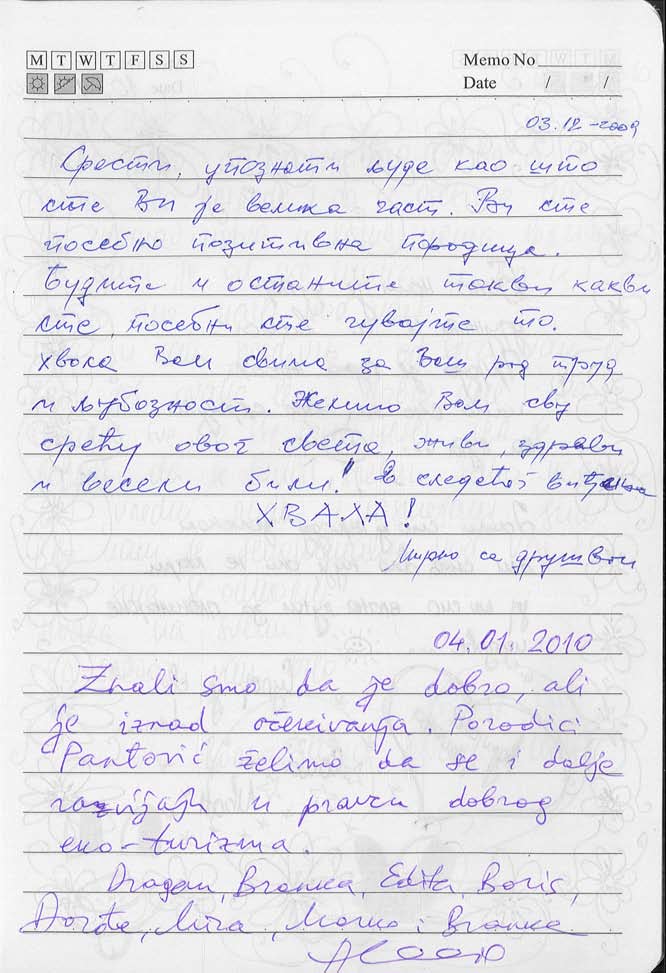 M T W T F S S
Memo No
Date / /
03.12-2009
Срести, упознати људе као што
сте Ви је велика част. Ви сте
посебно позитивна породица.
Будите и останите такви какви
сте, посебни сте чувајте то.
Хвала Вам свима за Ваш рад труд
и љубазност. Желимо Вам сву
срећу овог света, живи, здрави
и весели били!" До следећег виђања
ХВАЛА!
са друштвом
04.01.2010
Znali smo da je dobro, ali
je iznad očekivanja. Porodici
Pantović želimo da se i dalje
razvijaju u pravcu dobrog
eko-turizma.
Dragan, Branka, Edita, Boris,
Đorđe, Mira, Marko i Branka